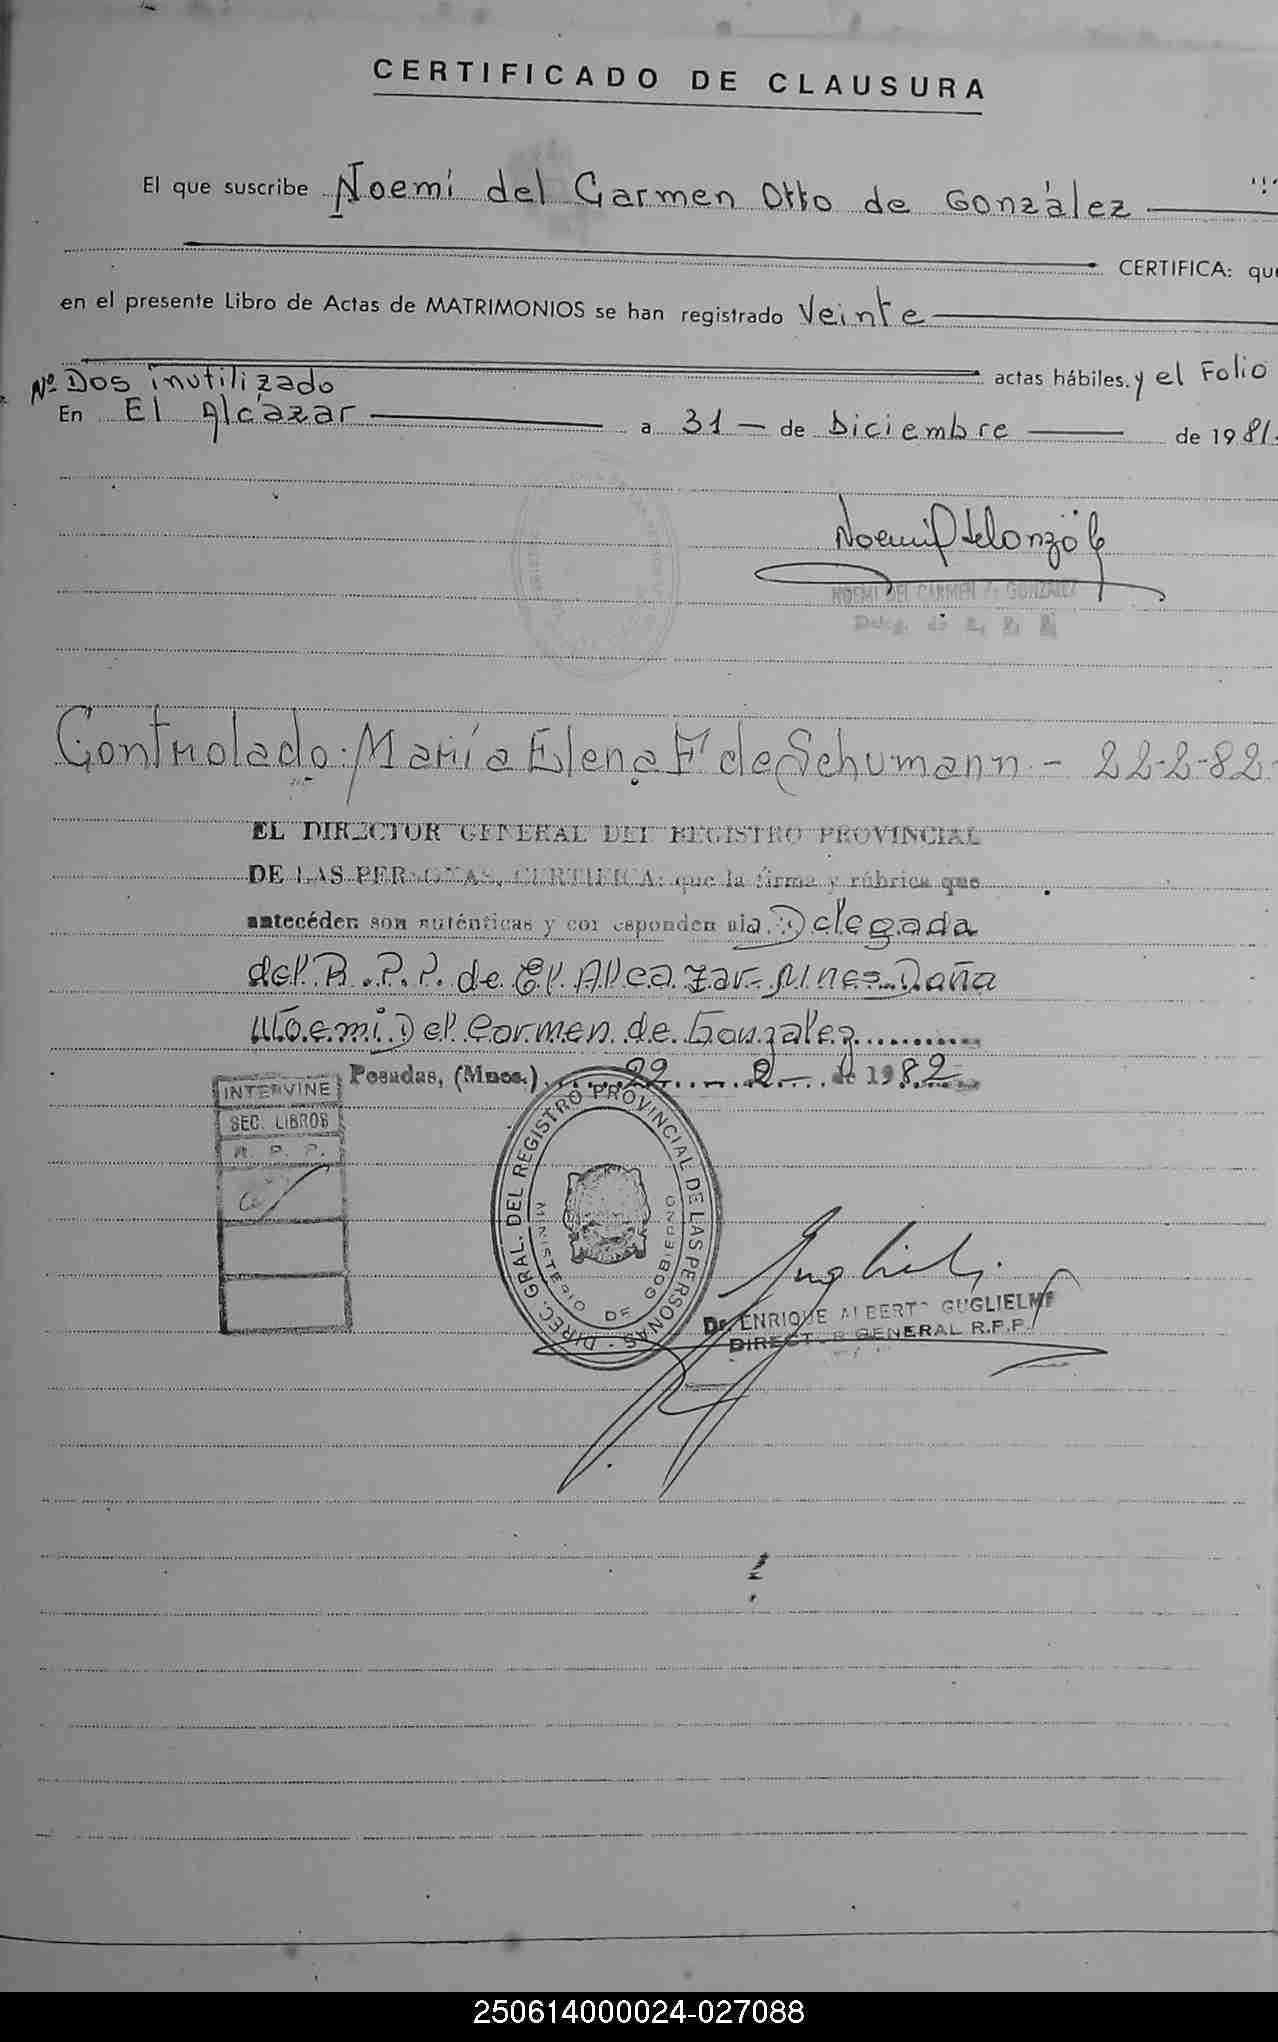 CERTIFICADO DE CLAUSURA
El que suscribe Noemí del Carmen Otto de González
CERTIFICA: que
en el presente Libro de Actas de MATRIMONIOS se han registrado Veinte
actas hábiles. y el Folio
Nº Dos inutilizado
En El Alcázar a 31 - de Diciembre de 1981.
NOEMI DEL CARMEN de GONZALEZ
Deleg.
Controlado: María Elena F de Schumann - 22-2-82-
EL DIRECTOR GENERAL DEL REGISTRO PROVINCIAL
DE LAS PERSONAS, CERTIFICA: que la firma y rúbrica que
antecéden son auténticas y corresponden a la Delegada
del R.P.P. de El Alcazar- Mnes. Doña
Noemi Del Carmen de Gonzalez
Posadas, (Mnes.) 22 - 2 - de 1982
INTERVINE
SEC. LIBROS
R. P. P.
DIREC. GRAL. DEL REGISTRO PROVINCIAL DE LAS PERSONAS
MINISTERIO DE GOBIERNO
Dr. ENRIQUE ALBERTO GUGLIELMI
DIRECTOR GENERAL R.P.P.
250614000024-027088